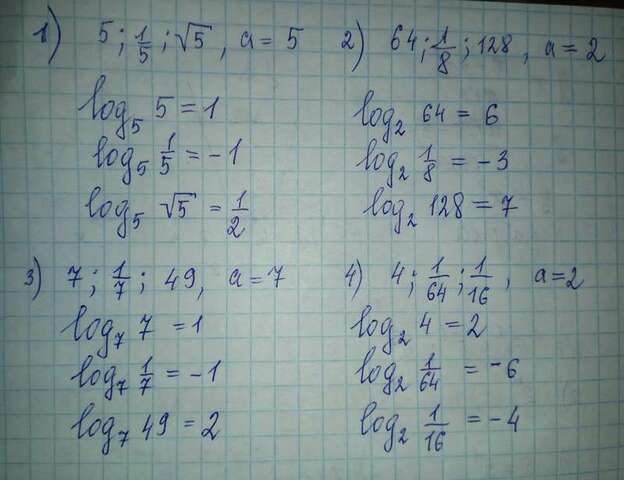 1) 5; 1/5; √5, a = 5
log₅ 5 = 1
log₅ 1/5 = -1
log₅ √5 = 1/2
2) 64; 1/8; 128, a = 2
log₂ 64 = 6
log₂ 1/8 = -3
log₂ 128 = 7
3) 7; 1/7; 49, a = 7
log₇ 7 = 1
log₇ 1/7 = -1
log₇ 49 = 2
4) 4; 1/64; 1/16, a = 2
log₂ 4 = 2
log₂ 1/64 = -6
log₂ 1/16 = -4